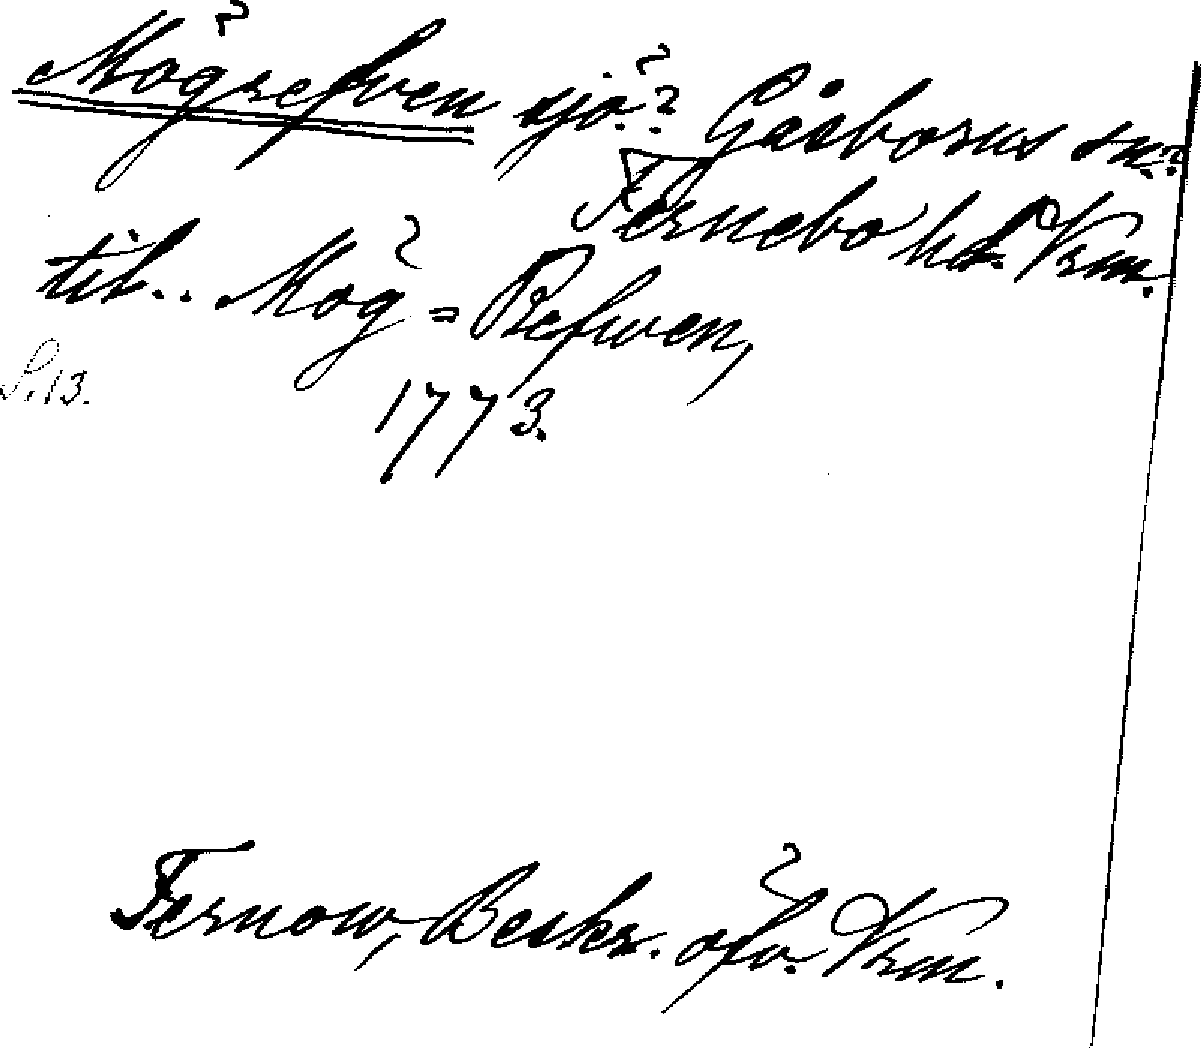 Mögrefven sjö? Gåsborns sn?
Fernebo hd. Vrm.
till.. Mög=Refwen,
S. 13.
1773.
Fernow, Beskr. öfv. Vrm.